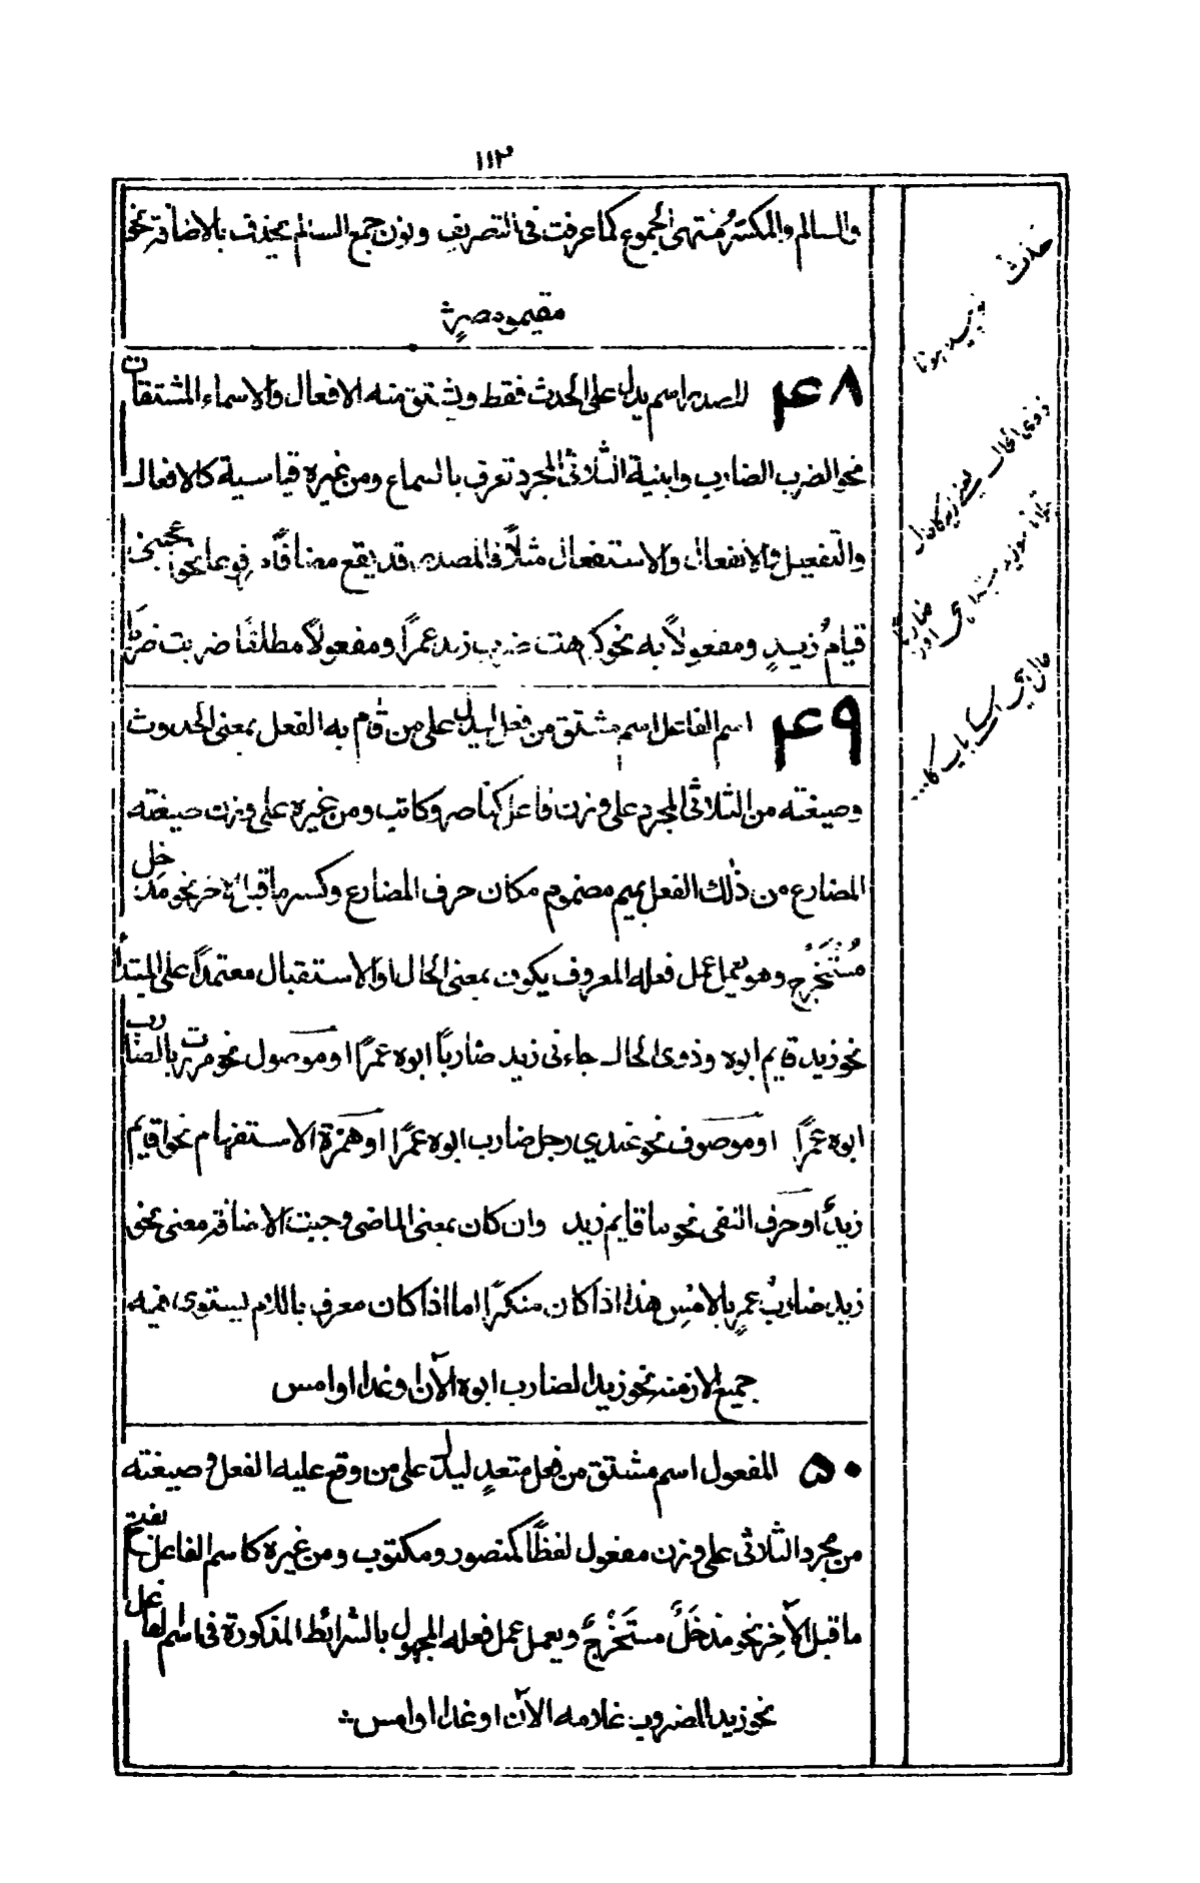 ١١٢
والسالم والمكسّر منتهى الجموع كما عرفت فى التصريف ونون جمع السالم يحذف بالاضافة نحو
مقيمو مصرٍ
۴۸ المصدر اسم يدل على الحدث فقط ويشتق منه الافعال والاسماء المشتقات
نحو الضرب الضارب وابنية الثلاثى المجرد تعرف بالسماع ومن غيره قياسية كالافعال
والتفعيل والانفعال والاستفعال مثلًا فالمصدر قد يقع مضافًا
قيامُ زيدٍ ومفعولًا به نحو كرهت ضرب زيد عمرًا ومفعولًا مطلقًا ضربت ضربًا
۴۹ اسم الفاعل اسم مشتق من فعل ليدل على من قام به الفعل بمعنى الحدوث
وصيغته من الثلاثى المجرد على وزن فاعل كناصر وكاتب ومن غيره على وزن صيغته
المضارع من ذٰلك الفعل بميم مضموم مكان حرف المضارع وكسر ما قبل الاخر نحو مدخل
مُسْتَخْرِج وهو يعمل عمل فعله المعروف يكون بمعنى الحال او الاستقبال معتمدًا على المبتدأ
نحو زيد قايم ابوه وذوى الحال جاءنى زيد ضاربًا ابوه عمرًا او موصول نحو مررت بالضارب
ابوه عمرًا او موصوف نحو عندي رجل ضارب ابوه عمرًا او همزة الاستفهام نحو اقايم
زيدٌ او حرف النفى نحو ما قايم زيد وان كان بمعنى الماضى وجبت الاضافة معنى نحو
زيد ضاربُ عمرٍ بالامسِ هذا اذا كان منكرًا اما اذا كان معرف باللام يستوى فيه
جميع الازمنه نحو زيد الضارب ابوه الآن او غدا او امس
۵۰ المفعول اسم مشتق من فعل متعدٍ ليدل على من وقع عليه الفعل وصيغته
من مجرد الثلاثى على وزن مفعول لفظًا كمنصور ومكتوب ومن غيره كاسم الفاعل بفتح
ما قبل الآخِر نحو مدخَلٌ مستَخْرَجٌ ويعمل عمل فعله المجهول بالشرائط المذكورة فى اسم الفاعل
نحو زيد المضروب غلامه الآن او غدا او امس